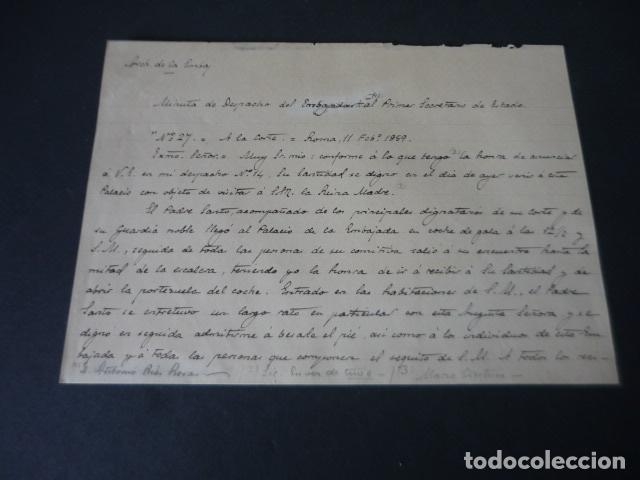 Arch. de la Emb.
Minuta de Despacho del Embajador al Primer Secretario de Estado.
"Nº 27. = A la Corte. = Roma, 11 Febº 1859.
Exmo. Señor. = Muy Sr. mio: conforme á lo que tengo la honra de anunciar
á V.E. en mi despacho Nº 14, Su Santidad se digno en el dia de ayer venir á este
Palacio con objeto de visitar á S.M. la Reina Madre.
El Padre Santo, acompañado de los principales dignatarios de su corte y de
su Guardia noble llegó al Palacio de la Embajada en coche de gala á las 12/2 y
S.M., seguida de toda las persona de su comitiva salió á su encuentro hasta la
mitad de la escalera, teniendo yo la honra de ir á recibir á Su Santidad y de
abrir la portezuela del coche. Entrado en las habitaciones de S.M., el Padre
Santo se entretuvo un largo rato en particular con esta Augusta Señora y se
digno en seguida admitirme á besarle el pié, así como á los individuos de esta Em-
bajada y á toda las persona que componen el sequito de S.M. A todos los reci-
D. Antonio Rios Rosas Maria Cristina
todocoleccion.net